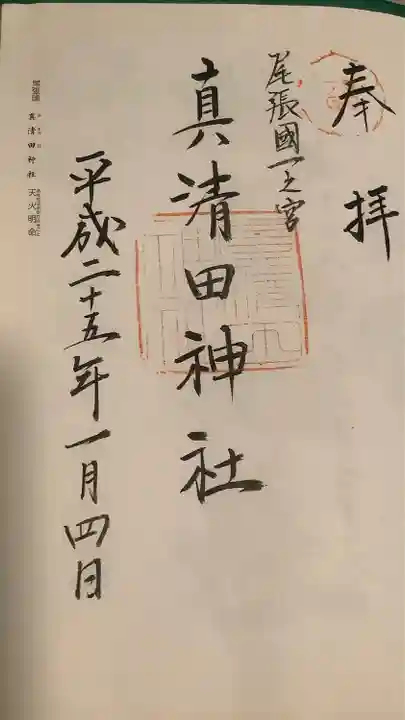 奉拝
尾張國一之宮
真清田神社
平成二十五年一月四日
尾張國 真清田神社 天火明命